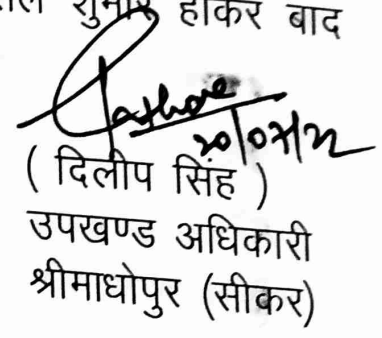 शुमार होकर बाद
Rathore
20/07/22
( दिलीप सिंह )
उपखण्ड अधिकारी
श्रीमाधोपुर (सीकर)